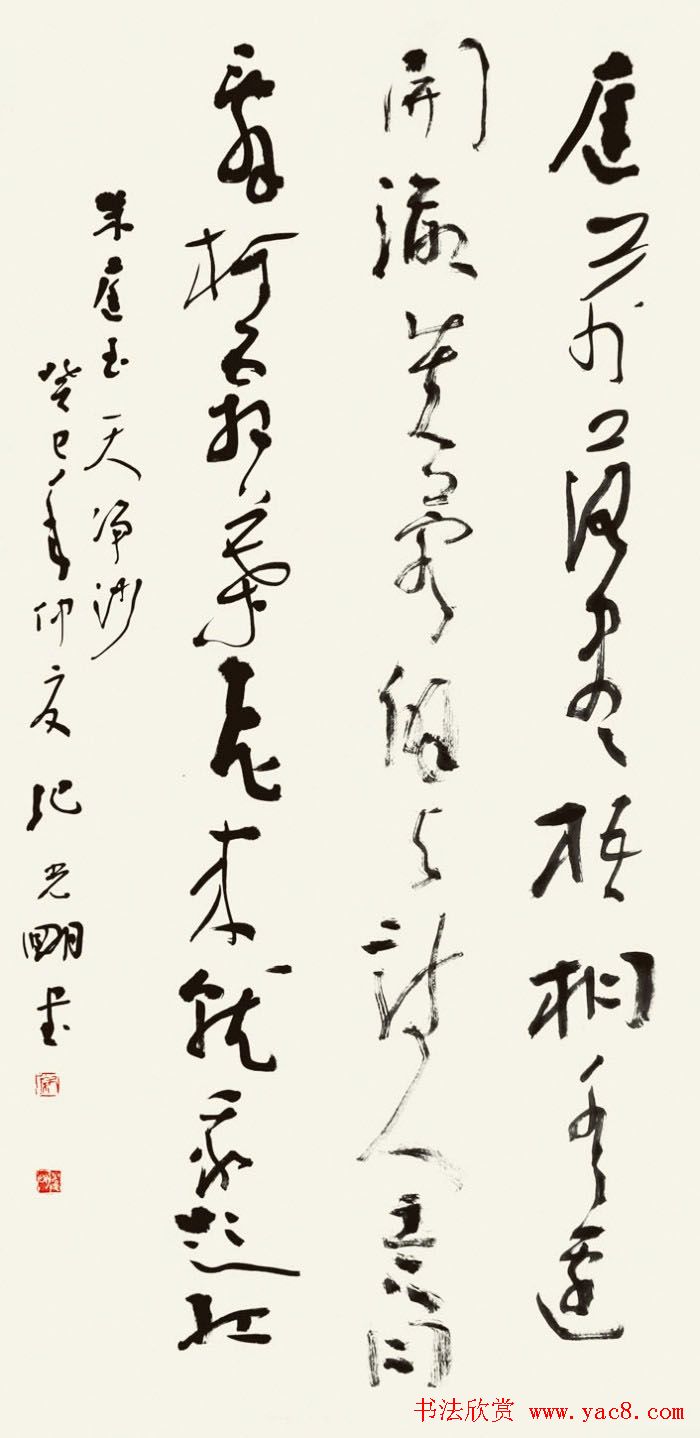 庭前落盡梧桐水邊
開徹芙蓉解与詩人意同
辭柯霜葉飛來就我題紅
朱庭玉天净沙
癸巳年仲夏纪光明书
书法欣赏 www.yac8.com